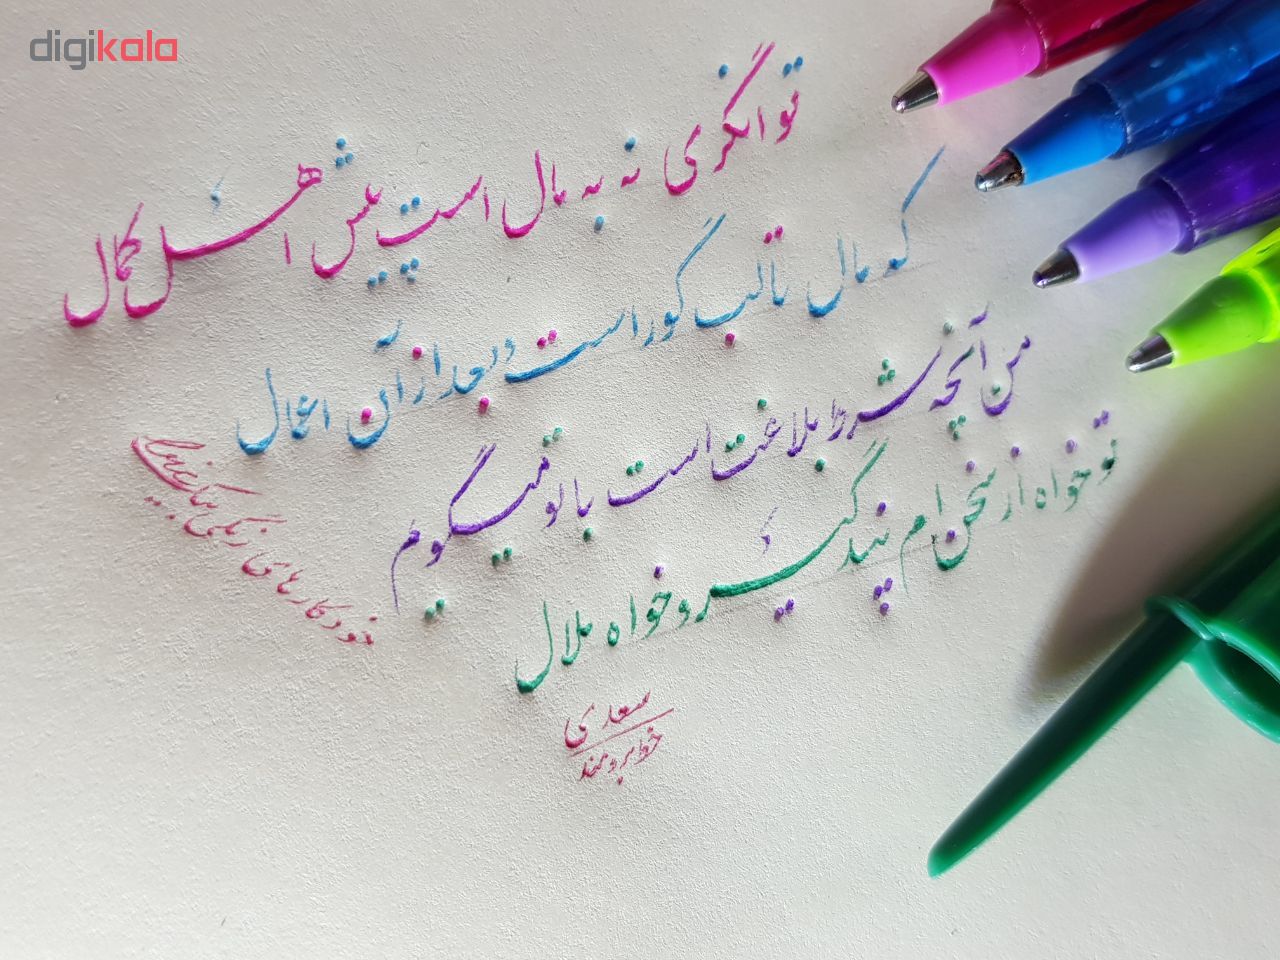 digikala
توانگری نه به مال است پیش اهل کمال
که مال تا لب گور است و بعد از آن اعمال
من آنچه شرط بلاغت است با تو میگویم
تو خواه از سخن ام پند گیر و خواه ملال
سعدی
خط برومند
خودکارهای رنگی